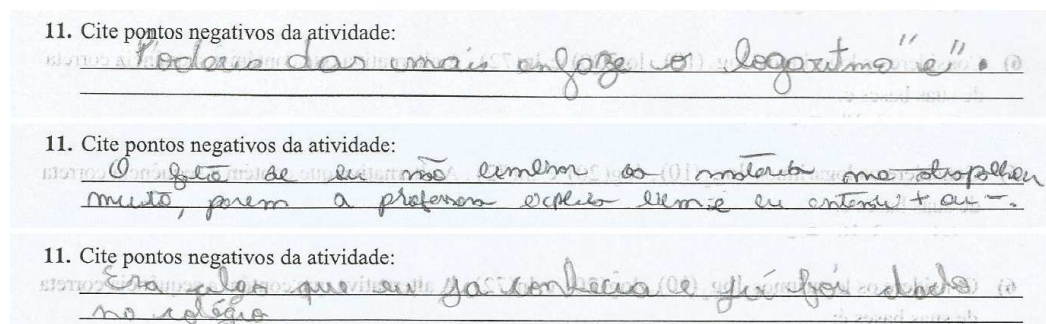 11. Cite pontos negativos da atividade:
Poderia dar mais enfaze o logaritmo "e".
11. Cite pontos negativos da atividade:
O fato de eu não lembrar as matérias me atrapalhou
muito, porem a professora explico bem e eu entendi + ou -.
11. Cite pontos negativos da atividade:
Era algo que eu ja conhecia e já foi dado
no colégio